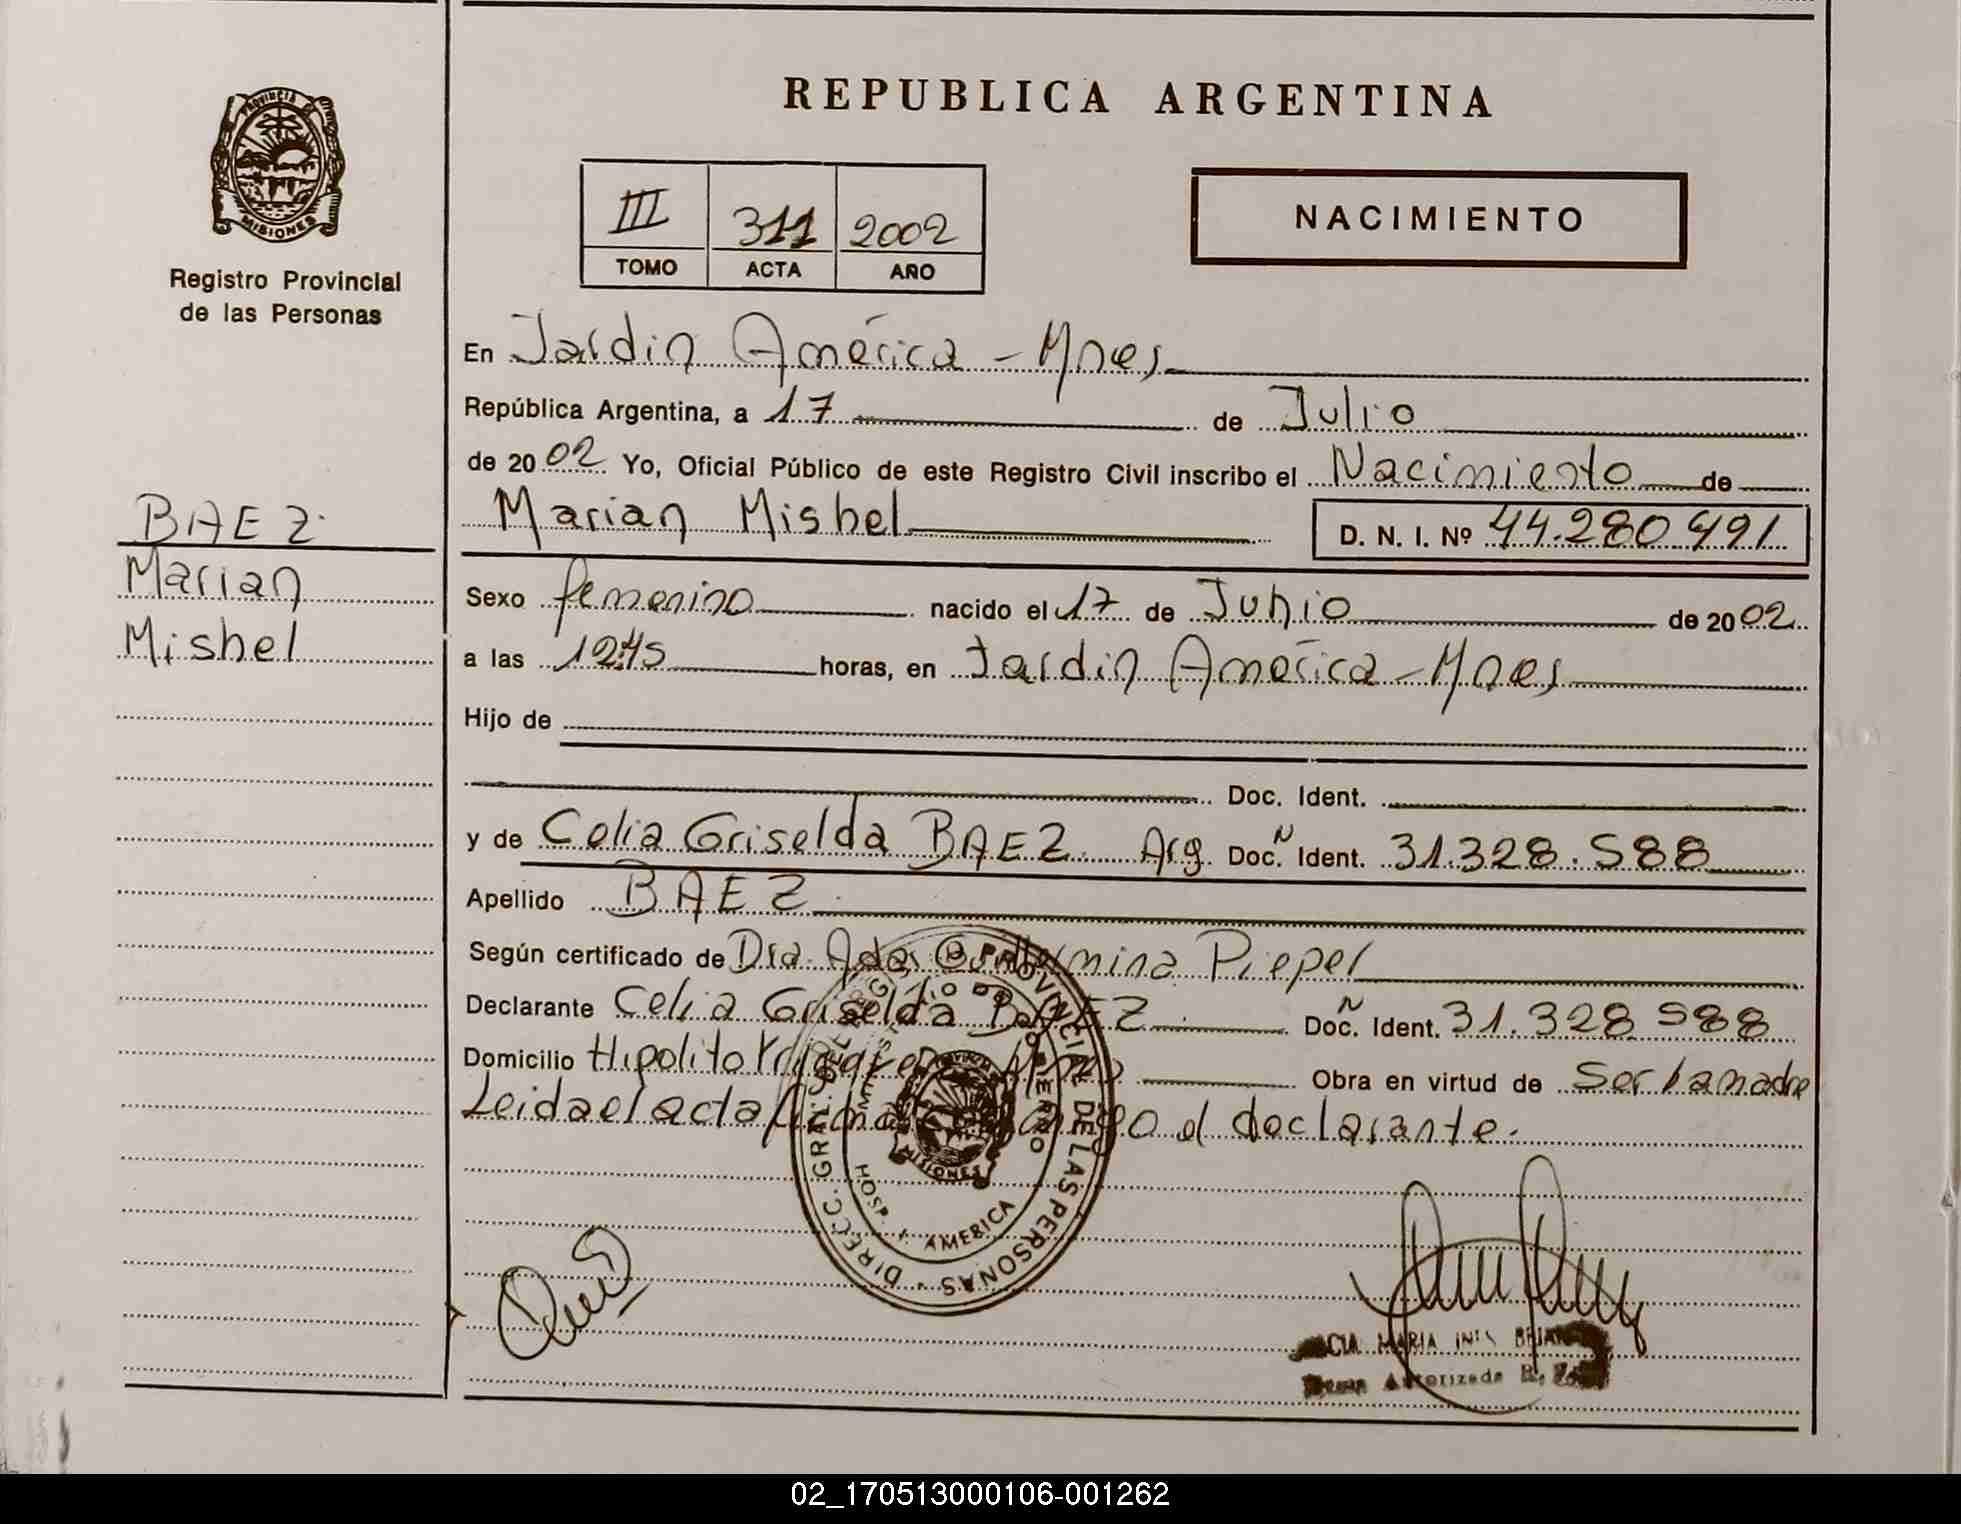 PROVINCIA DE
MISIONES
Registro Provincial
de las Personas
BAEZ
Marian
Mishel
REPUBLICA ARGENTINA
III 311 2002
TOMO ACTA AÑO
NACIMIENTO
En Jardin América - Mnes
República Argentina, a 17 de Julio
de 20 02 Yo, Oficial Público de este Registro Civil inscribo el Nacimiento de
Marian Mishel D. N. I. Nº 44.280.491
Sexo femenino nacido el 17 de Junio de 20 02
a las 12:45 horas, en Jardin América - Mnes
Hijo de
Doc. Ident.
y de Celia Griselda BAEZ Arg. Doc. Ident. 31.328.588
Apellido BAEZ
Según certificado de Dra. Ada Guillermina Pieper
Declarante Celia Griselda BAEZ Doc. Ident. 31.328.588
Domicilio Hipolito Mnes Obra en virtud de Ser la madre
Leida el acta el declarante.
DIRECC. GRAL. DEL REG. PROVINCIAL DE LAS PERSONAS
HOSP. J. AMERICA
MISIONES
MARIA
Autorizada
02_170513000106-001262